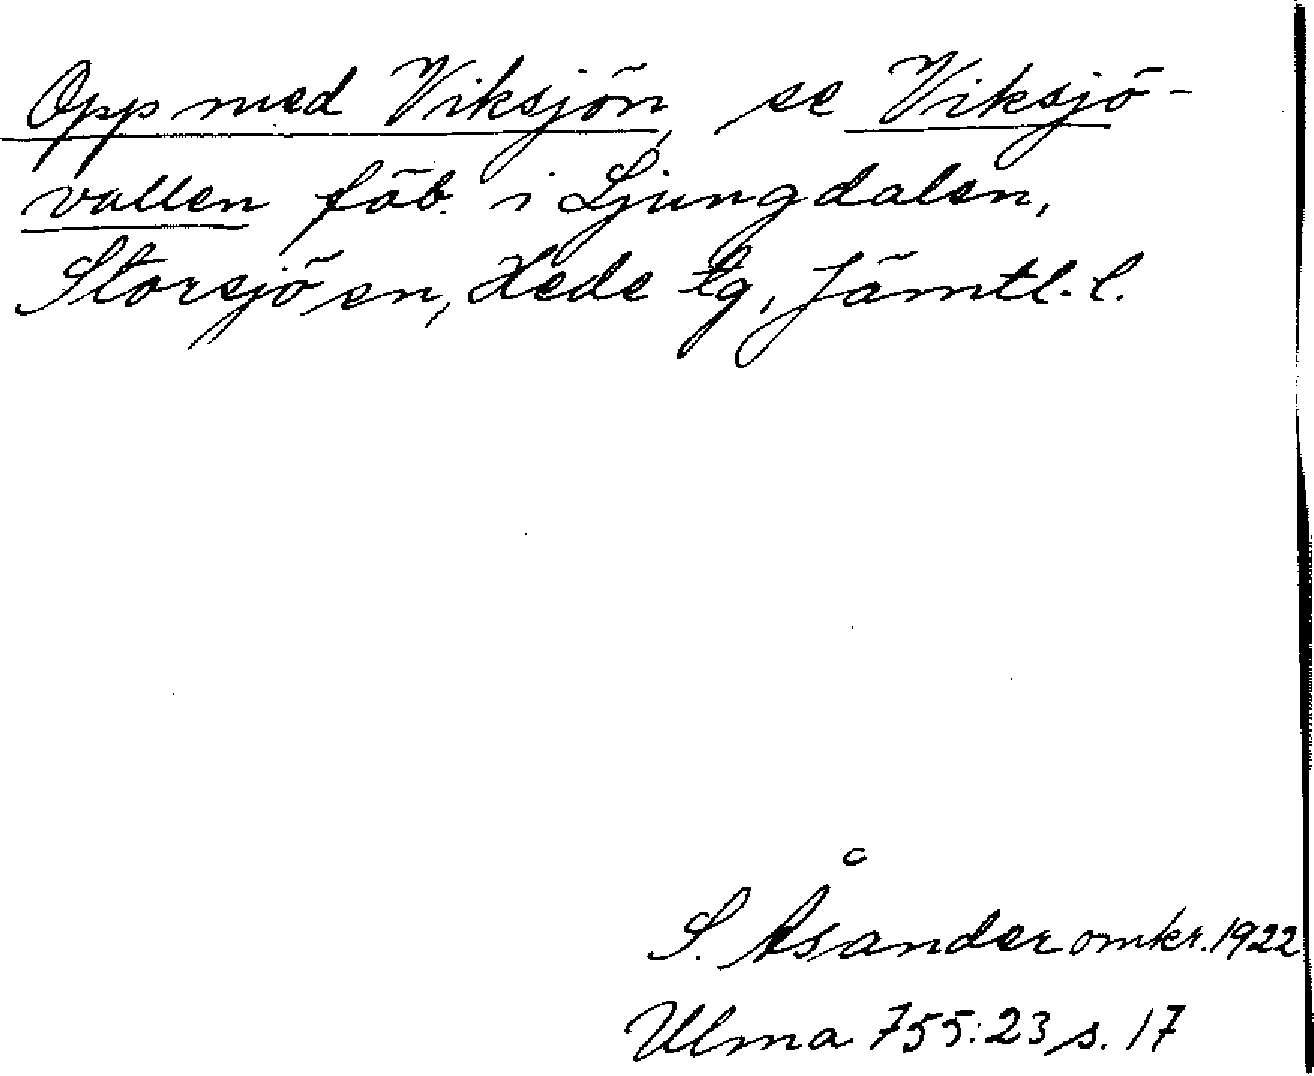 Opp med Viksjön, se Viksjö-
vallen fäb. i Ljungdalen,
Storsjö sn, Hede tg, Jämtl. l.
S. Åsander omkr. 1922
Ulma 755:23 s. 17